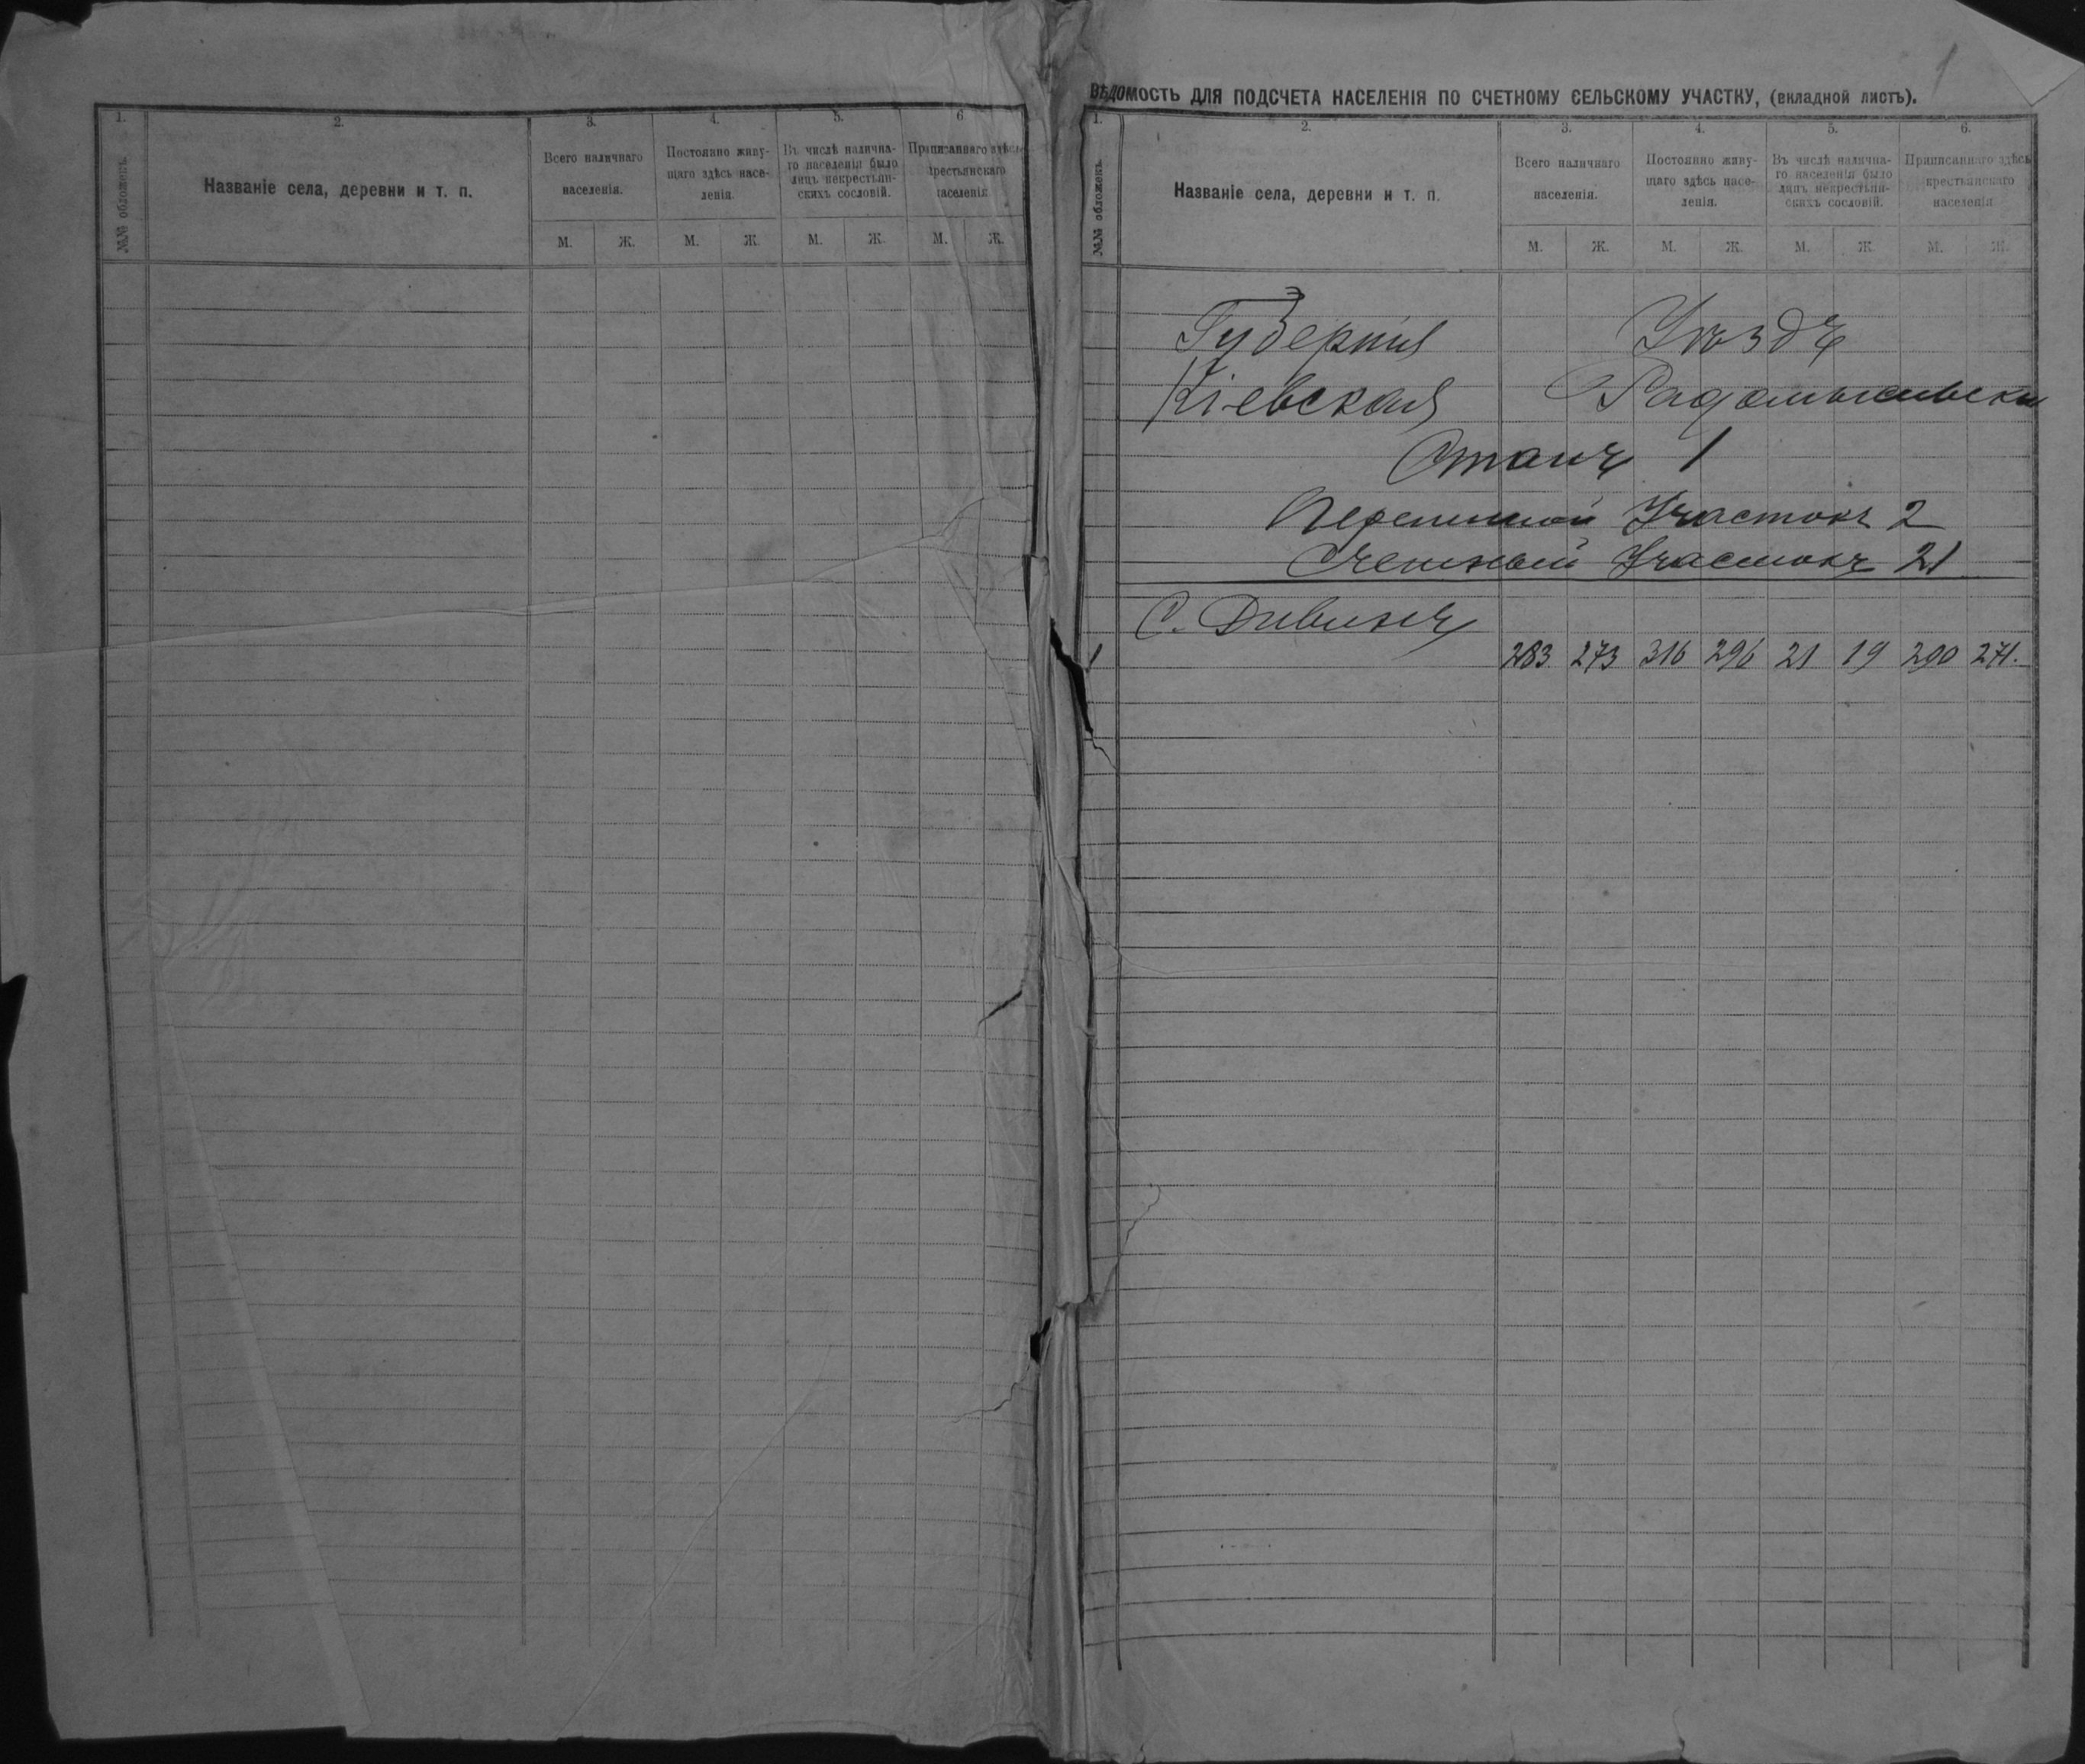 1.
2.
3.
4.
5.
6
№№ обложекъ.
Названіе села, деревни и т. п.
Всего наличнаго
населенія.
Постоянно живу-
щаго здѣсь насе-
ленія.
Въ числѣ налична-
го населенія было
лицъ некрестьян-
скихъ сословій.
Приписаннаго здѣсь
крестьянскаго
населенія
М. Ж. М. Ж. М. Ж. М. Ж.
1
ВѢДОМОСТЬ ДЛЯ ПОДСЧЕТА НАСЕЛЕНІЯ ПО СЧЕТНОМУ СЕЛЬСКОМУ УЧАСТКУ, (вкладной листъ).
1.
2.
3.
4.
5.
6.
№№ обложекъ.
Названіе села, деревни и т. п.
Всего наличнаго
населенія.
Постоянно живу-
щаго здѣсь насе-
ленія.
Въ числѣ налична-
го населенія было
лицъ некрестьян-
скихъ сословій.
Приписаннаго здѣсь
крестьянскаго
населенія
М. Ж. М. Ж. М. Ж. М. Ж.
Губернія Уѣздъ
Кіевская Радомысльскій
Станъ 1
Участокъ 2
Счетный Участокъ 21
С. Дивинъ
1 283 273 316 296 21 19 290 271.